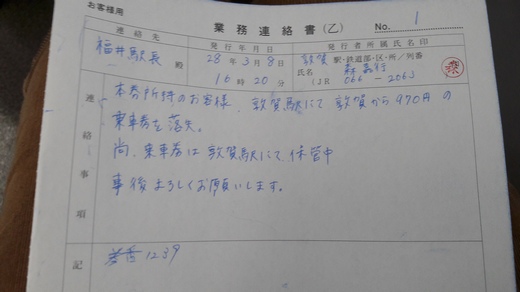 お客様用
業務連絡書(乙) No. 1
連絡先 発行年月日 発行者所属氏名印
福井駅長 殿 28年3月8日 敦賀 駅・鉄道部・区・所/列番
16時20分 氏名
(JR 066-2063
連絡事項
本券所持のお客様、敦賀駅にて敦賀から970円の
乗車券を落失。
尚、乗車券は敦賀駅にて保管中
事後よろしくお願いします。
記
1239